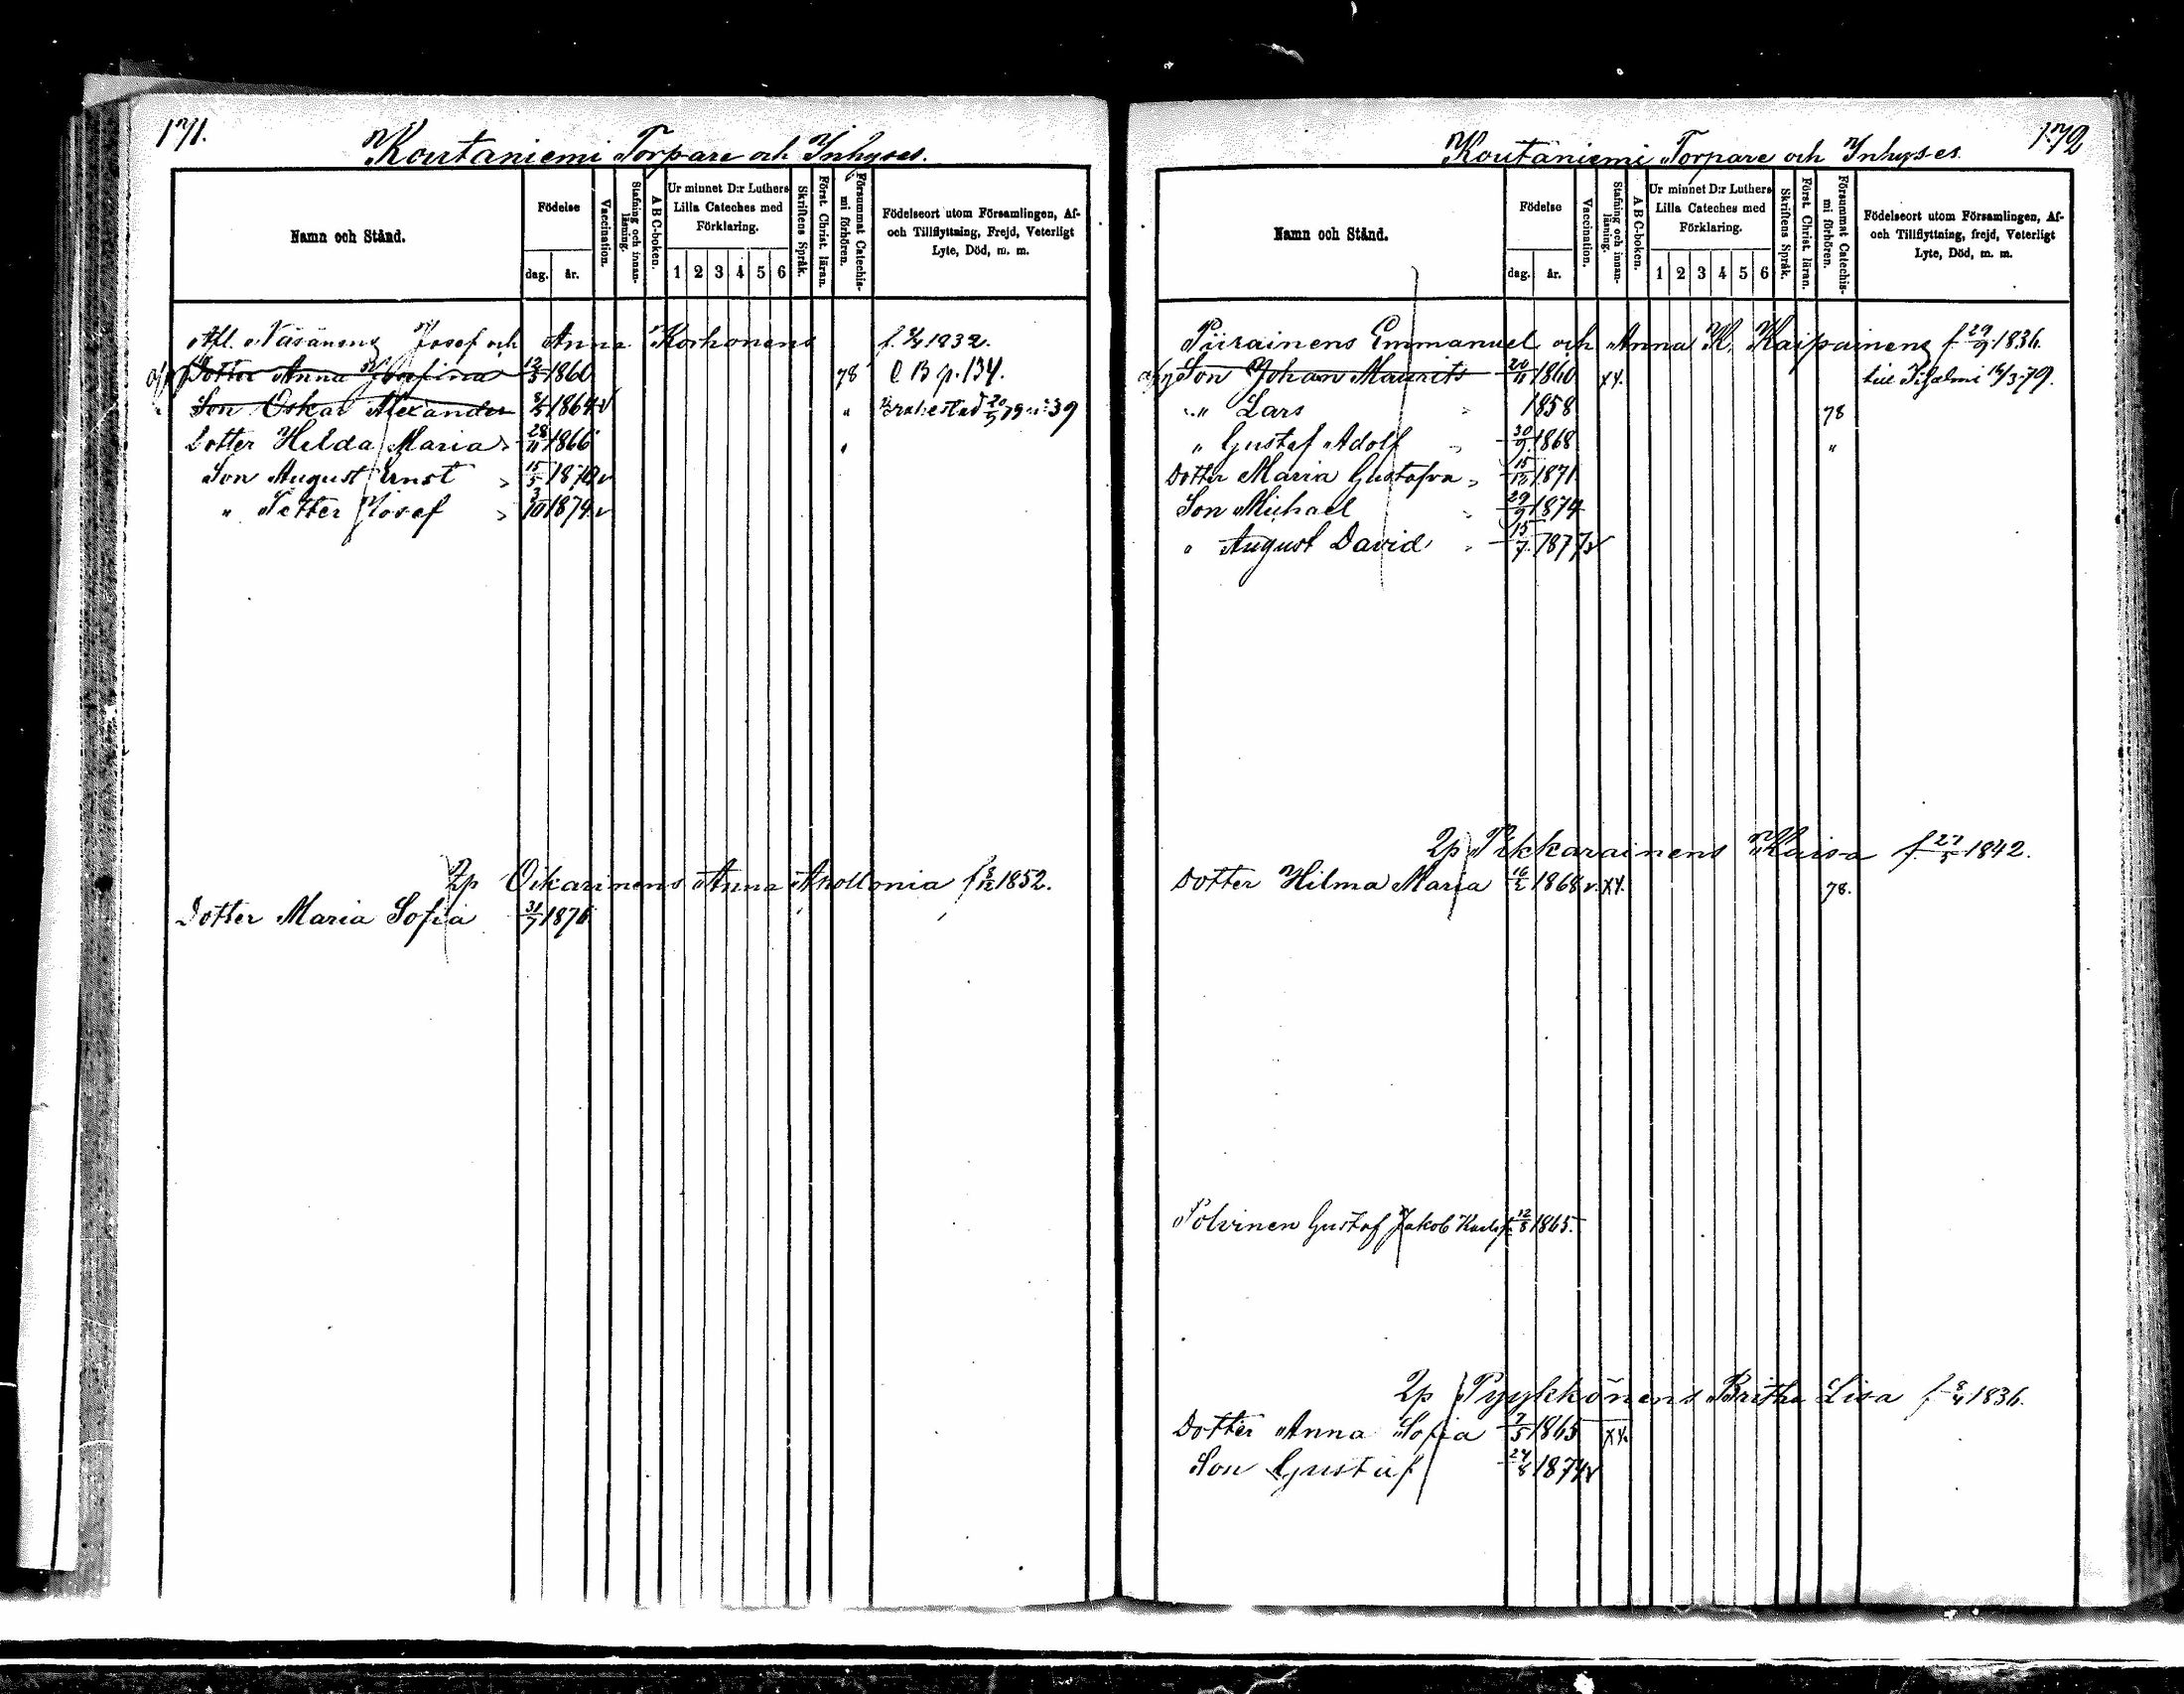 171.
Koutaniemi Torpare och Inhyses.
Namn och Stånd.
Födelse
dag.
år.
Vaccination.
Stafning och innanläsning.
ABC-boken.
Ur minnet D:r Luthers Lilla Cateches med Förklaring.
1 2 3 4 5 6
Skriftens Språk.
Först. Christ. läran.
Försummat Catechismi förhören.
Födelseort utom Församlingen, Af- och Tillflyttning, Frejd, Veterligt Lyte, Död, m. m.
Afl. Väsänens Josef och Anna Korhonens 1832.
Dotter Anna Josefina 12/5 1860 78 C B p. 134.
Son Oskar Alexander 1864 v " Brahestad 20/5 79 39
Dotter Hilda Maria 28/11 1866 "
Son August Ernst " 15/5 1872 v
" Petter Josef " 3/10 1874 v
2p Oikarinens Anna Apollonia f 8/12 1852.
Dotter Maria Sofia 31/7 1876
172
Koutaniemi Torpare och Inhyses.
Namn och Stånd.
Födelse
dag.
år.
Vaccination.
Stafning och innanläsning.
ABC-boken.
Ur minnet D:r Luthers Lilla Cateches med Förklaring.
1 2 3 4 5 6
Skriftens Språk.
Först. Christ. läran.
Försummat Catechismi förhören.
Födelseort utom Församlingen, Af- och Tillflyttning, frejd, Veterligt Lyte, Död, m. m.
Piirainens Emmanuel och Anna K. Kaipainens f 29/9 1836.
Son Johan Maurits 20/11 1860 xy. till Idensalmi 79.
" Lars " 1858 78
" Gustaf Adolf " 30/9 1868 "
Dotter Maria Gustafva " 15/12 1871
Son Michael " 29/9 1874
" August David " 15/7 1877 v
2p Pikkarainens Kaisa f 27/5 1842.
Dotter Hilma Maria 16/2 1868 v. xy. 78.
Polvinen Gustaf Jakob Karlsf 12/8 1865.
2p Pyykkönens Britha Lisa f 8/4 1836.
Dotter Anna Sofia 7/5 1865 xy.
Son Gustaf 24/6 1874 v